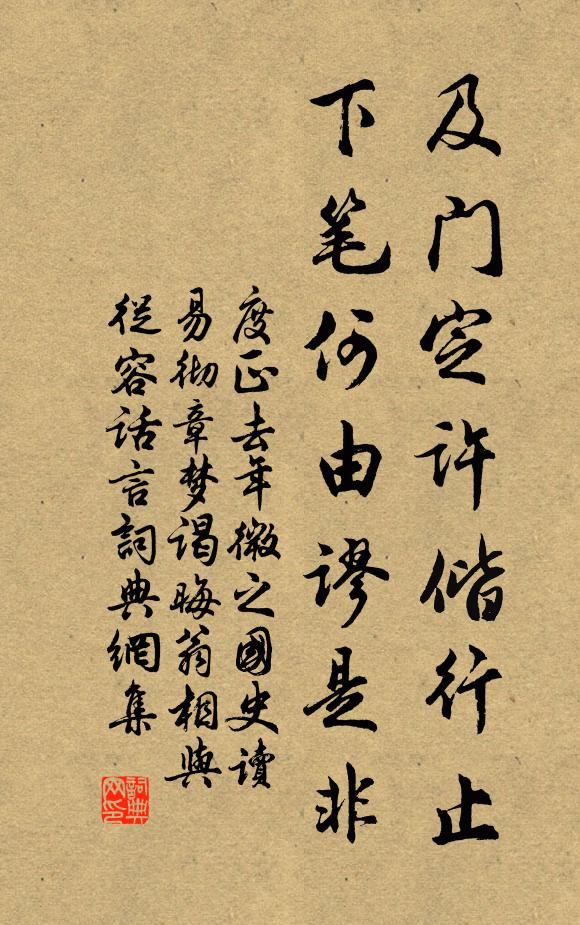 及门定许偕行止
下笔何由谬是非
度正去年微之國史讀
易彻章梦谒晦翁相與
從容话言詞典網集
詞典網印